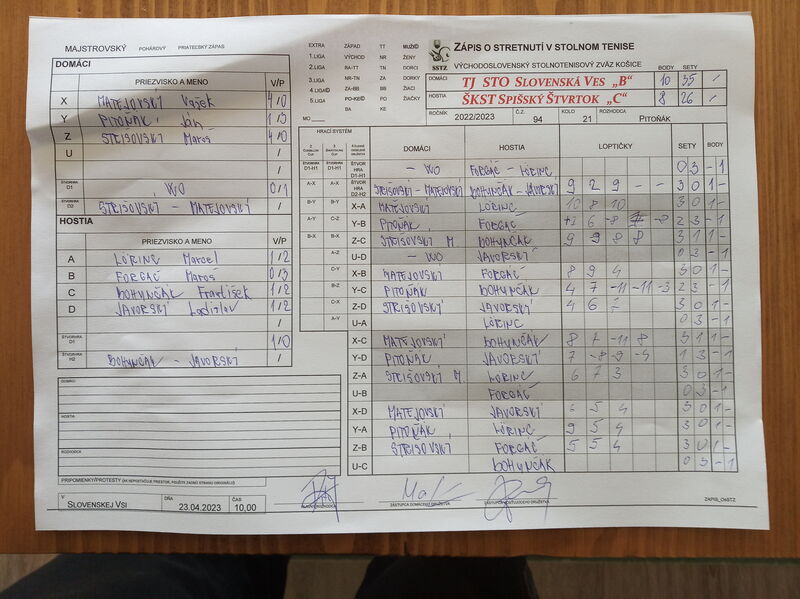 MAJSTROVSKÝ POHÁROVÝ PRIATEĽSKÝ ZÁPAS
DOMÁCI
PRIEZVISKO A MENO V/P
X MATEJOVSKÝ Vašek 4/0
Y PITOŇÁK Ján 1/3
Z STRISOVSKÝ Maroš 4/0
U /
ŠTVORHRA D1 WO 0/1
ŠTVORHRA D2 STRISOVSKÝ - MATEJOVSKÝ /
HOSTIA
PRIEZVISKO A MENO V/P
A LÖRINC Marcel 1/2
B FORGÁČ Maroš 0/3
C BOHYNČÁK František 1/2
D JAVORSKÝ Ladislav 1/2
/
ŠTVORHRA D1 1/0
ŠTVORHRA H2 BOHYNČÁK - JAVORSKÝ /
DOMÁCI:
HOSTIA:
ROZHODCA:
PRIPOMIENKY/PROTESTY (AK NEPOSTAČUJE PRIESTOR, POUŽITE ZADNÚ STRANU ORIGINÁLU)
V SLOVENSKEJ VSI DŇA 23.04.2023 ČAS 10,00
EXTRA ZÁPAD TT MUŽI
1.LIGA VÝCHOD NR ŽENY
2.LIGA BA-TT TN DORCI
3.LIGA NR-TN ZA DORKY
4.LIGA ZA-BB BB ŽIACI
5.LIGA PO-KE PO ŽIAČKY
BA KE
MO
SSTZ
ZÁPIS O STRETNUTÍ V STOLNOM TENISE
VÝCHODOSLOVENSKÝ STOLNOTENISOVÝ ZVÄZ KOŠICE BODY SETY
DOMÁCI TJ STO SLOVENSKÁ VES „B" 10 35 /
HOSTIA ŠKST SPIŠSKÝ ŠTVRTOK „C" 8 26 /
ROČNÍK 2022/2023 Č.Z. 94 KOLO 21 ROZHODCA PITOŇÁK
HRACÍ SYSTÉM
DOMÁCI HOSTIA LOPTIČKY SETY BODY
ŠTVORHRA D1-H1 - WO FORGÁČ - LÖRINC 0 3 - 1
A-X ŠTVORHRA D2-H2 STRISOVSKÝ - MATEJOVSKÝ BOHYNČÁK - JAVORSKÝ 9 2 9 - - 3 0 1 -
B-Y B-Y X-A MATEJOVSKÝ LÖRINC 10 8 10 3 0 1 -
A-Y C-Z Y-B PITOŇÁK FORGÁČ 6 -8 -8 2 3 - 1
B-X B-X Z-C STRISOVSKÝ M. BOHYNČÁK 9 9 8 8 3 1 1 -
A-Z U-D - WO JAVORSKÝ
C-Y X-B MATEJOVSKÝ FORGÁČ 8 9 4 3 0 1 -
B-Z Y-C PITOŇÁK BOHYNČÁK 4 7 -11 -11 -3 2 3 - 1
C-X Z-D STRISOVSKÝ JAVORSKÝ 4 6 3 0 1 -
A-X U-A LÖRINC 0 3 - 1
X-C MATEJOVSKÝ BOHYNČÁK 8 7 -11 8 3 1 1 -
Y-D PITOŇÁK JAVORSKÝ 7 -8 -9 -4 1 3 - 1
Z-A STRISOVSKÝ M. LÖRINC 6 7 3 3 0 1 -
U-B FORGÁČ 0 3 - 1
X-D MATEJOVSKÝ JAVORSKÝ 5 4 3 0 1 -
Y-A PITOŇÁK LÖRINC 9 5 4 3 0 1 -
Z-B STRISOVSKÝ FORGÁČ 5 5 4 3 0 1 -
U-C BOHYNČÁK 0 3 - 1
HLAVNÝ ROZHODCA ZÁSTUPCA DOMÁCEHO DRUŽSTVA ZÁSTUPCA HOSŤUJÚCEHO DRUŽSTVA
ZAPIS_OsSTZ